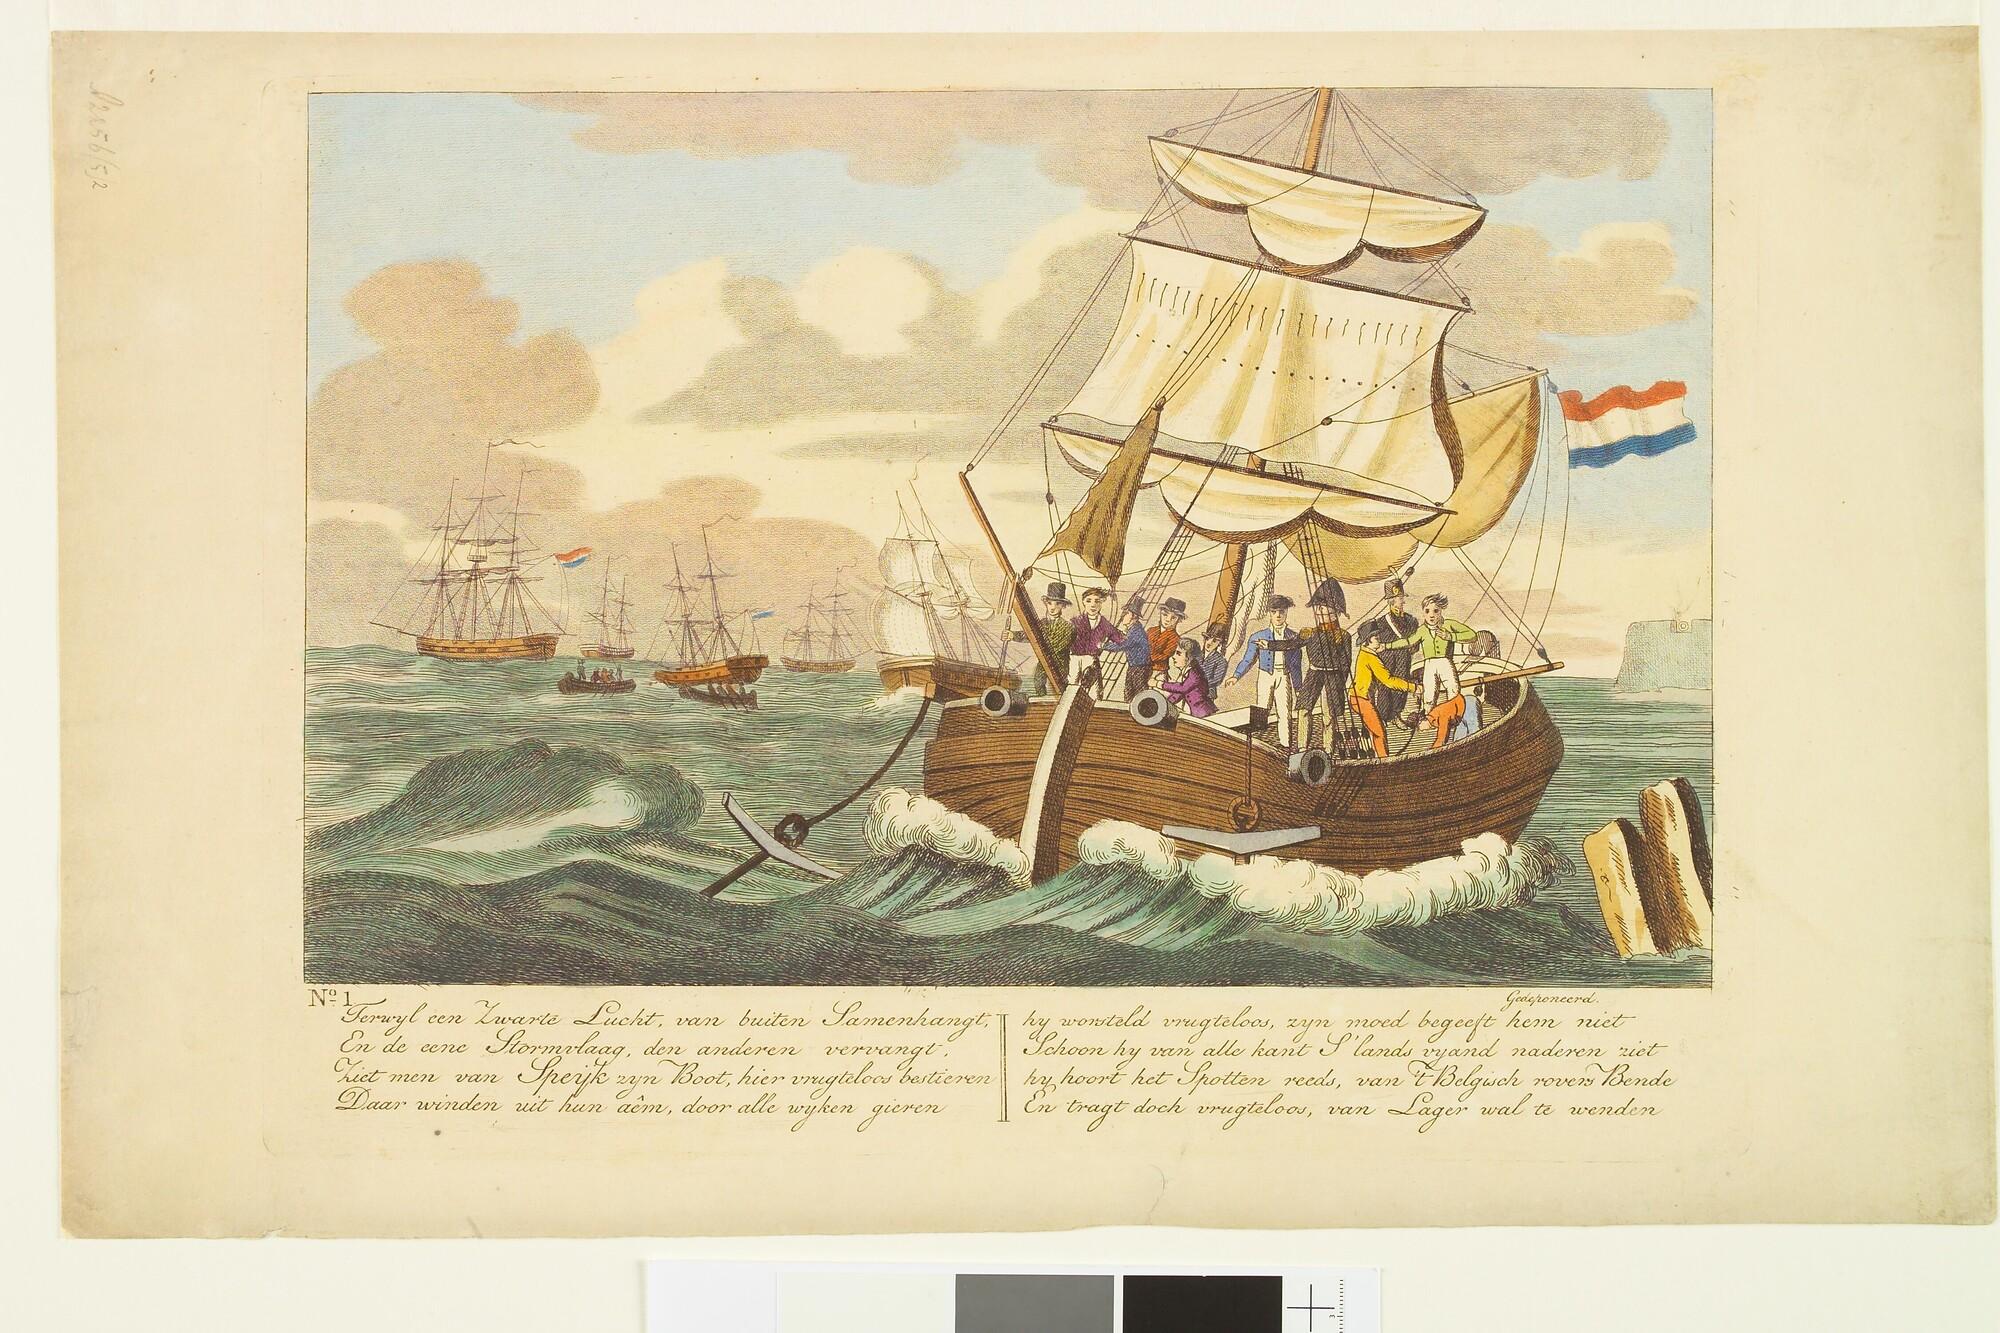 No 1
Gedeponeerd.
Terwyl een Zwarte Lucht, van buiten Samenhangt,
En de eene Stormvlaag, den anderen vervangt,
Ziet men van Speijk zyn Boot, hier vrugteloos bestieren
Daar winden uit hun aêm, door alle wyken gieren
hy worsteld vrugteloos, zyn moed begeeft hem niet
Schoon hy van alle kant S'lands vyand naderen ziet
hy hoort het Spotten reeds, van 't Belgisch rovers Bende
En tragt doch vrugteloos, van Lager wal te wenden